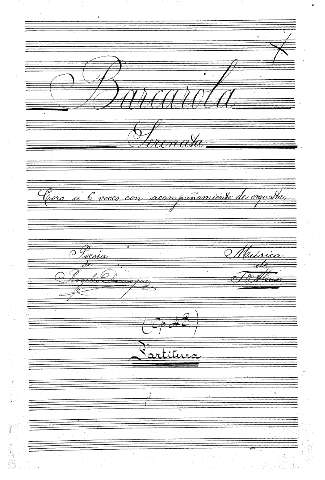 Barcarola
Serenata
Coro a 6 voces con acompañamiento de orquesta
Poesia Música
de de
(Op. 43)
Partitura